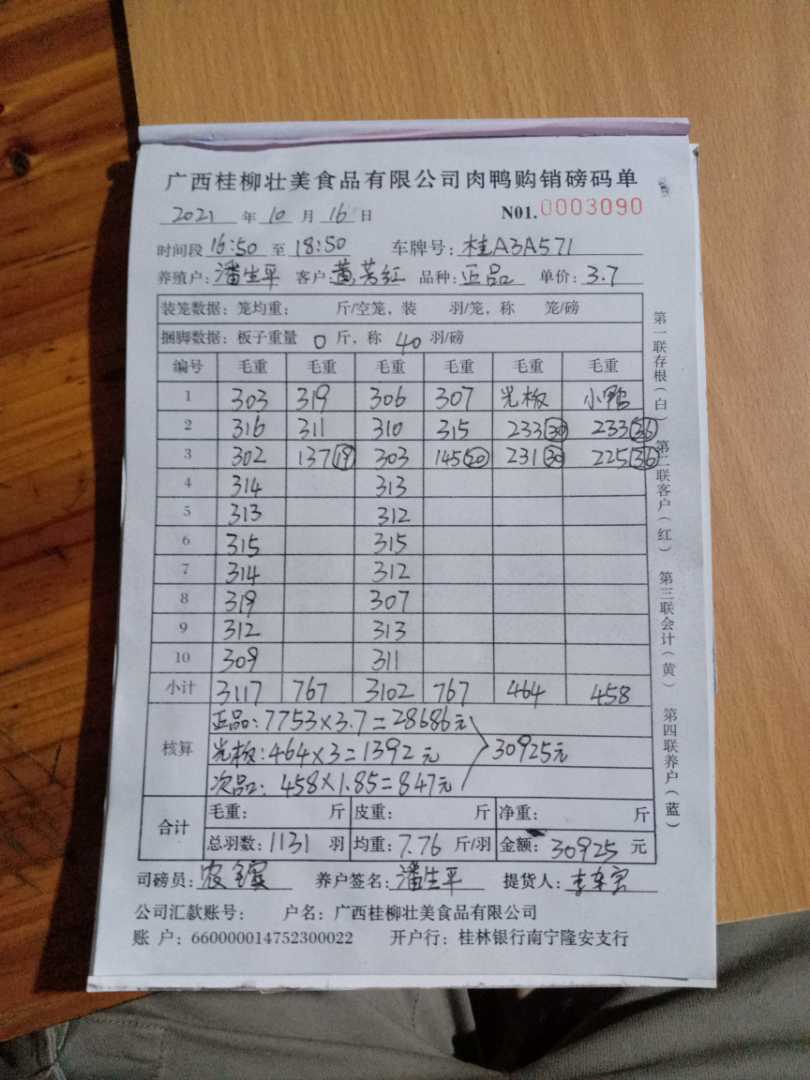 广西桂柳壮美食品有限公司肉鸭购销磅码单
2021 年 10 月 16 日 N01.0003090
时间段 16:50 至 18:50 车牌号: 桂A3A571
养殖户: 潘生平 客户: 黄芳红 品种: 正品 单价: 3.7
装笼数据: 笼均重: 斤/空笼, 装 羽/笼, 称 笼/磅
捆脚数据: 板子重量 0 斤, 称 40 羽/磅
编号 毛重 毛重 毛重 毛重 毛重 毛重
1 303 319 306 307 光板 小鸭
2 316 311 310 315 233 30 233 36
3 302 137 19 303 145 20 231 30 225 36
4 314 313
5 313 312
6 315 315
7 314 312
8 319 307
9 312 313
10 309 311
小计 3117 767 3102 767 464 458
核算
正品: 7753×3.7=28686元
光板: 464×3=1392元
次品: 458×1.85=847元
30925元
合计
毛重: 斤 皮重: 斤 净重: 斤
总羽数: 1131 羽 均重: 7.76 斤/羽 金额: 30925 元
司磅员: 养户签名: 潘生平 提货人:
公司汇款账号: 户名: 广西桂柳壮美食品有限公司
账户: 660000014752300022 开户行: 桂林银行南宁隆安支行
第一联存根(白) 第二联客户(红) 第三联会计(黄) 第四联养户(蓝)